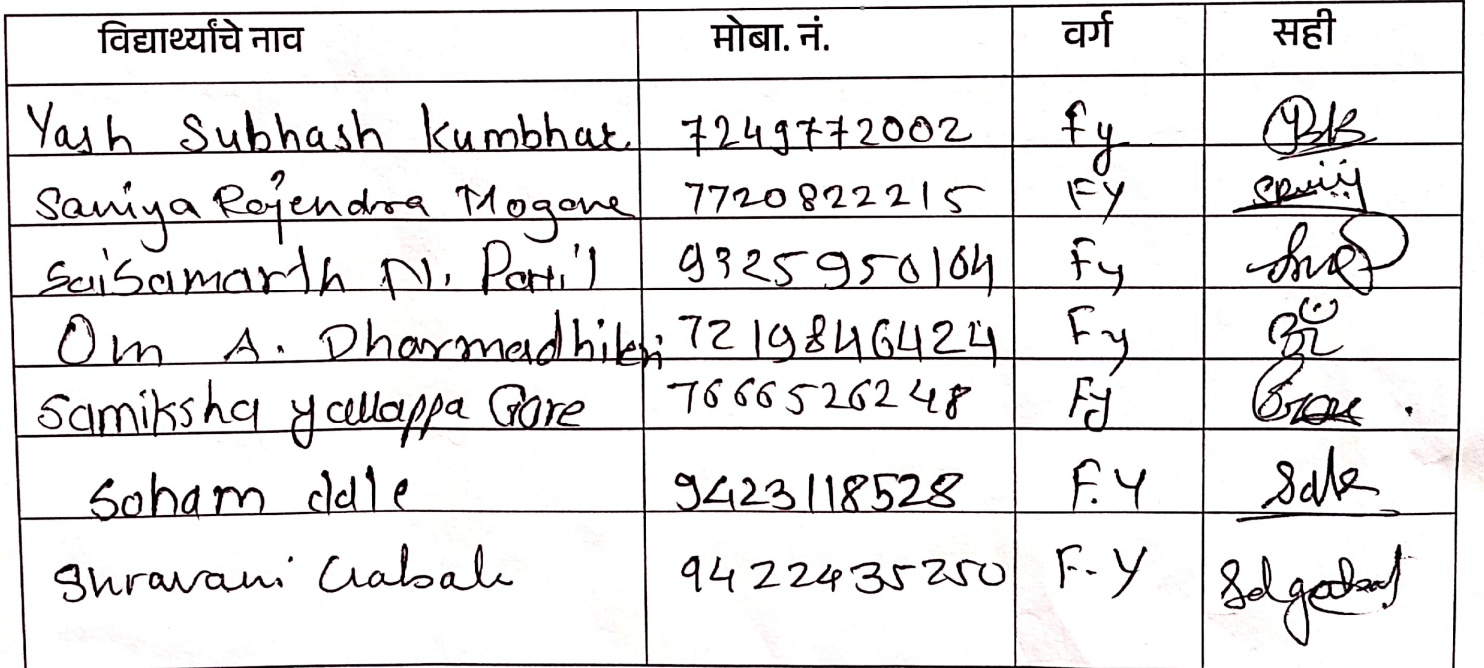 विद्यार्थ्यांचे नाव मोबा. नं. वर्ग सही
Yash Subhash Kumbhar 7249772002 Fy
Saniya Rajendra Mogane 7720822215 FY
SaiSamarth N. Patil 9325950104 Fy
Om A. Dharmadhikari 7219846424 Fy
Samiksha yallappa Gore 7666526248 Fy
Soham dale 9423118528 F.Y
Shravani Gabale 9422435250 F.Y